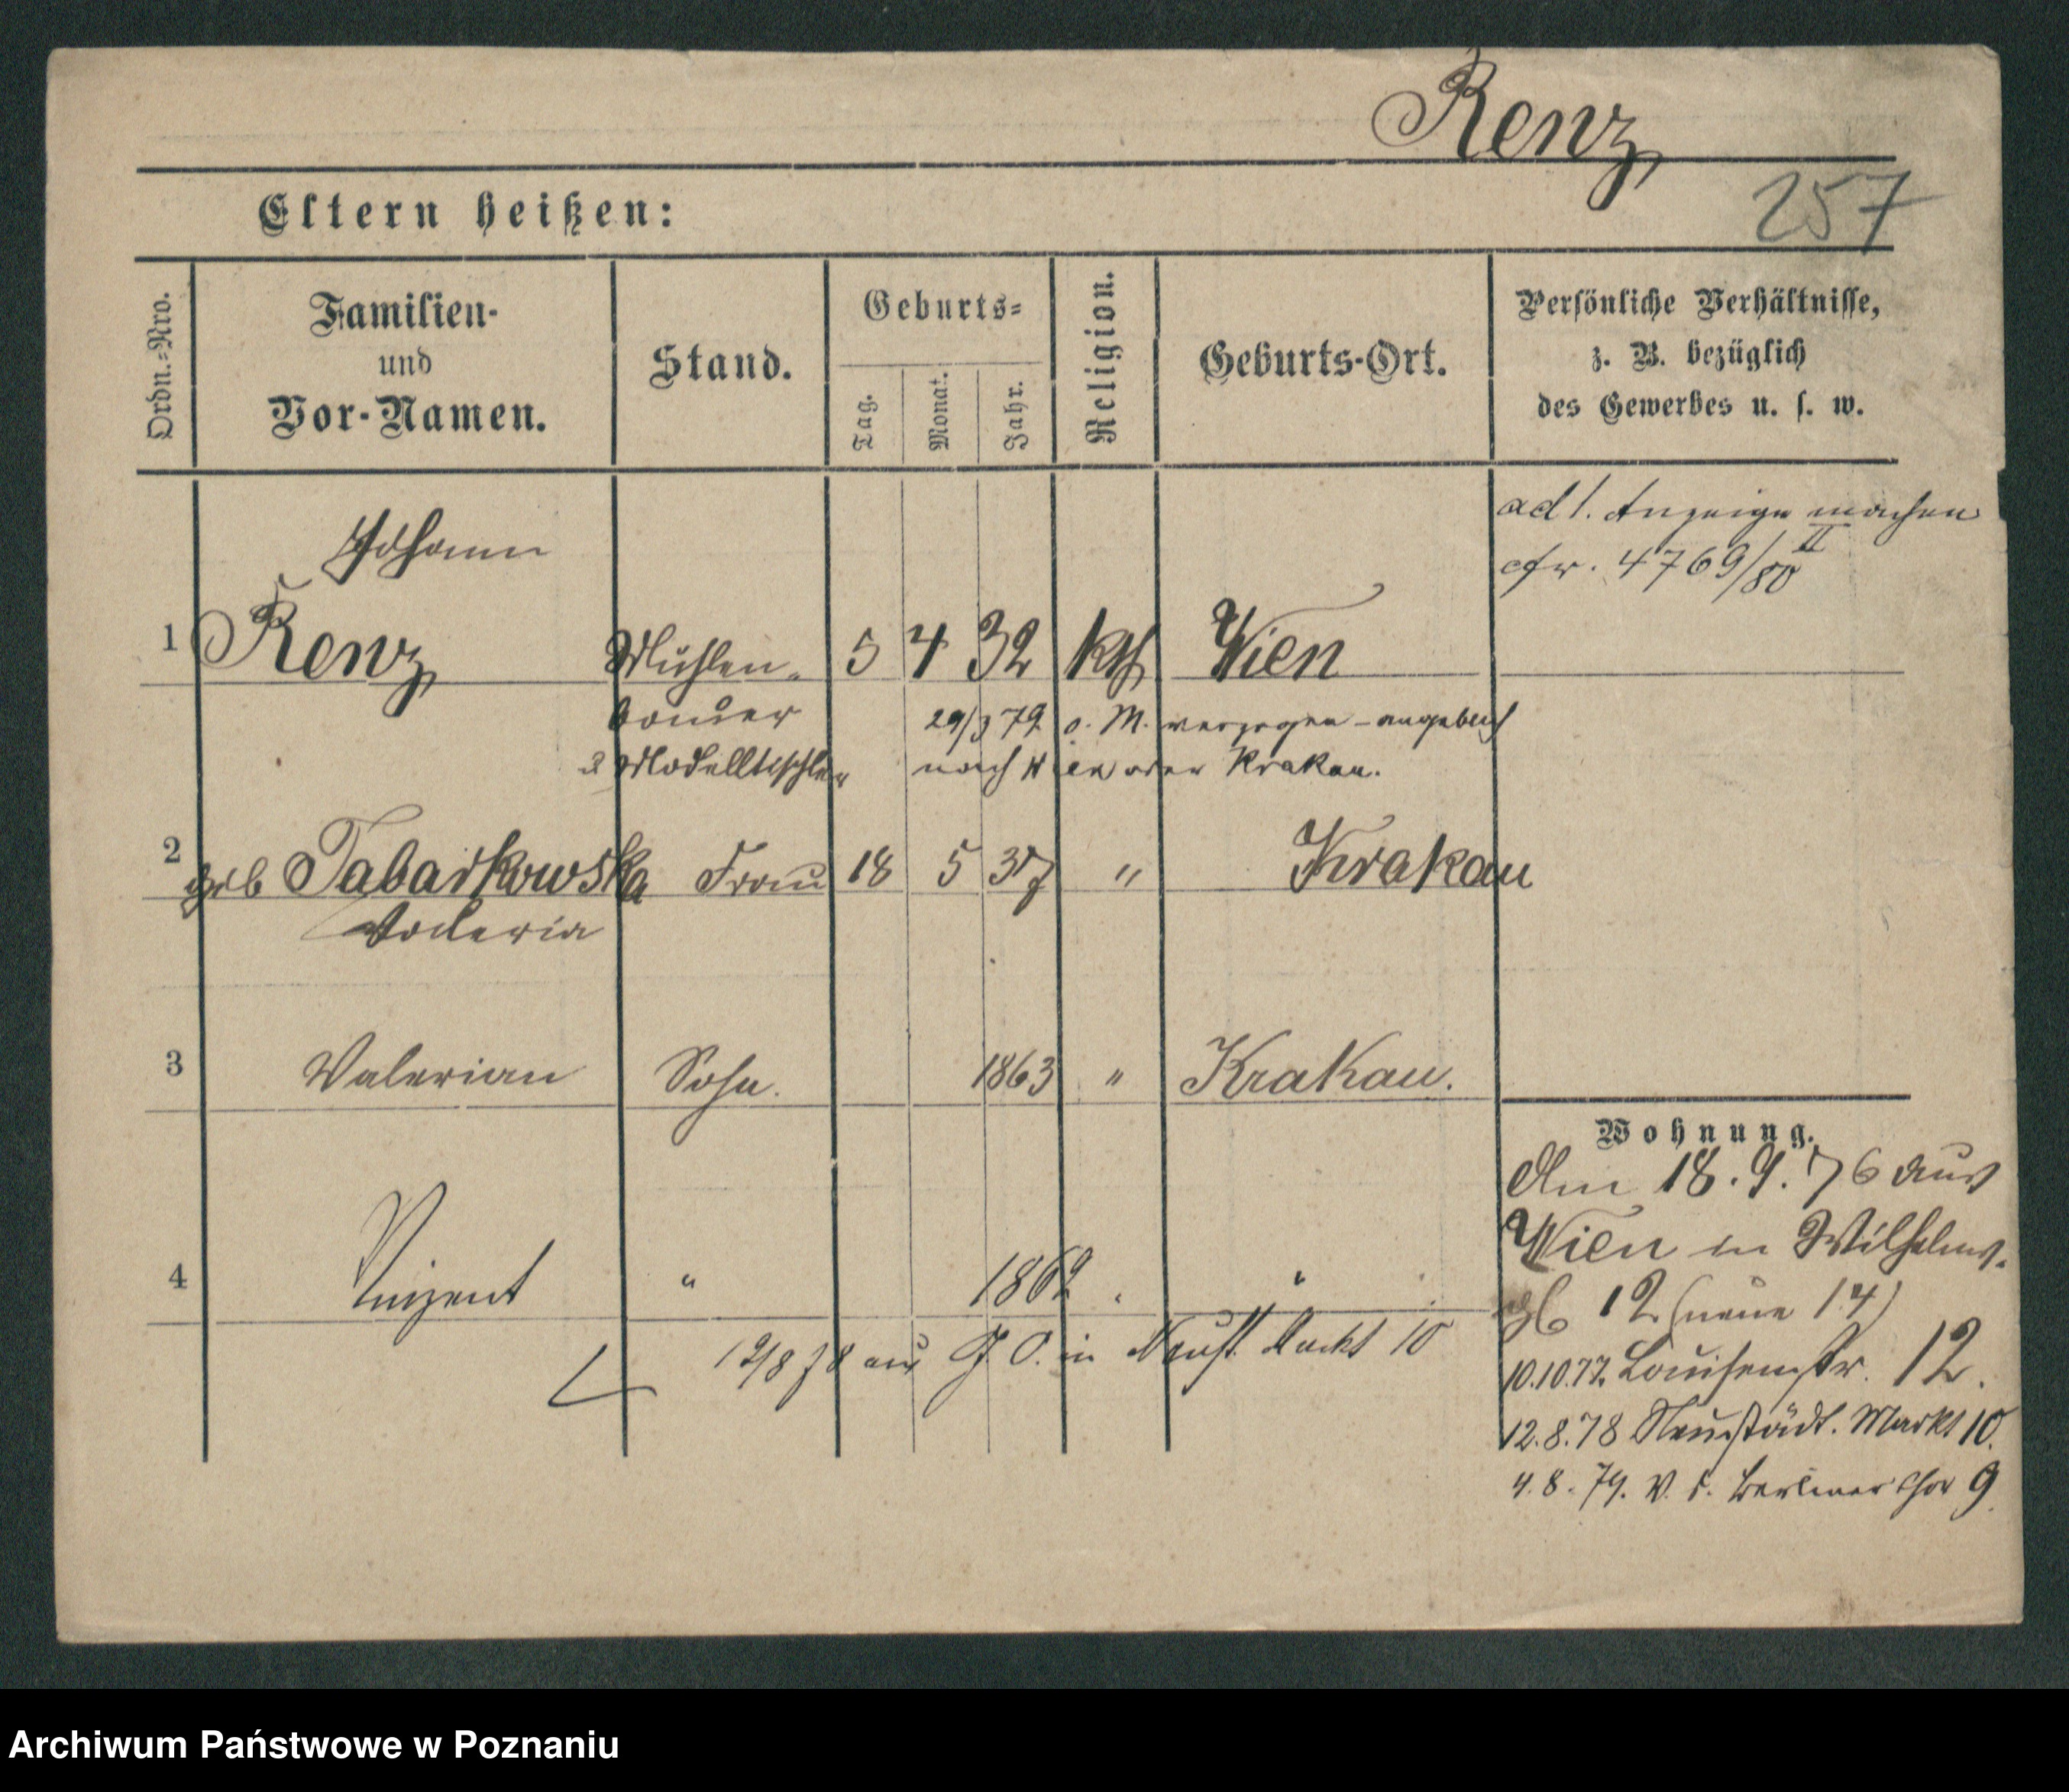 Renz
257
Eltern heißen:
Ordn.-Nro.
Familien- und Vor-Namen.
Stand.
Geburts-
Tag.
Monat.
Jahr.
Religion.
Geburts-Ort.
Persönliche Verhältnisse,
z. B. bezüglich
des Gewerbes u. s. w.
ad 1. Anzeige machen
cfr. 4769/80 II
Johann
1 Renz Mühlen- 5 4 32 kth Wien
bauer 29/3 79 o. M. verzogen - angeblich
u Modelltischler nach Wien oder Krakau.
2 geb Tabarkowska Frau 18 5 37 " Krakau
Valeria
3 Valerian Sohn. 1863 " Krakau.
4 Vinzent " 1862 "
12/8 78 aus J. O. in Neust. Markt 10
Wohnung.
Am 18.9.76 aus
Wien in Wilhelms-
12 (neue 14)
10.10.77. Louisenstr. 12.
12.8.78 Neustädt. Markt 10.
4.8.79. V. d. Berliner Thor 9
Archiwum Państwowe w Poznaniu